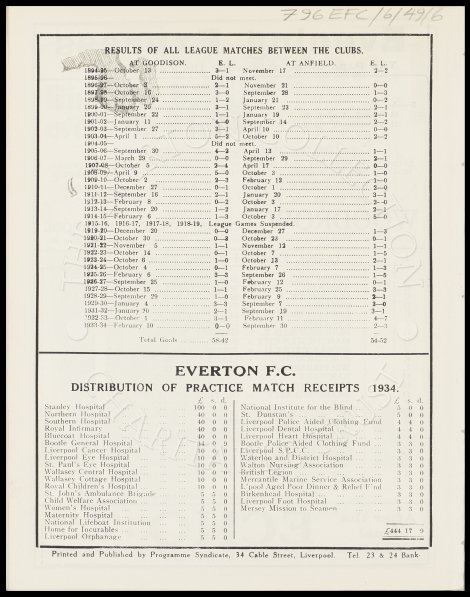 796 EFC/6/49/6
RESULTS OF ALL LEAGUE MATCHES BETWEEN THE CLUBS.
AT GOODISON. E. L. AT ANFIELD. E. L.
1894-95—October 13 3—1 November 17 2—2
1895-96— Did not meet.
1896-97—October 3 2—1 November 21 0—0
1897-98—October 16 3—0 September 28 1—3
1898-99—September 24 1—2 January 21 0—2
1899-00—January 20 3—1 September 23 2—1
1900-01—September 22 1—1 January 19 2—1
1901-02—January 11 4—0 September 14 2—2
1902-03—September 27 3—1 April 10 0—0
1903-04—April 1 5—2 October 10 2—2
1904-05— Did not meet.
1905-06—September 30 4—2 April 13 1—1
1906-07—March 29 0—0 September 29 2—1
1907-08—October 5 2—4 April 17 0—0
1908-09—April 9 5—0 October 3 1—0
1909-10—October 2 2—3 February 12 1—0
1910-11—December 27 0—1 October 1 2—0
1911-12—September 16 2—1 January 20 3—1
1912-13—February 8 0—2 October 5 2—0
1913-14—September 20 1—2 January 17 2—1
1914-15—February 6 1—3 October 3 5—0
1915-16, 1916-17, 1917-18, 1918-19, League Games Suspended.
1919-20—December 20 0—0 December 27 1—3
1920-21—October 30 0—3 October 23 0—1
1921-22—November 5 1—1 November 12 1—1
1922-23—October 14 0—1 October 7 1—5
1923-24—October 6 1—0 October 13 2—1
1924-25—October 4 0—1 February 7 1—3
1925-26—February 6 3—3 September 26 1—5
1926-27—September 25 1—0 February 12 0—1
1927-28—October 15 1—1 February 25 3—3
1928-29—September 29 1—0 February 9 2—1
1929-30—January 4 3—3 September 7 3—0
1931-32—January 30 2—1 September 19 3—1
1932-33—October 1 3—1 February 11 4—7
1933-34—February 10 0—0 September 30 2—3
Total Goals 58-42 54-52
EVERTON F.C.
DISTRIBUTION OF PRACTICE MATCH RECEIPTS 1934.
£ s. d.
Stanley Hospital 100 0 0
Northern Hospital 40 0 0
Southern Hospital 40 0 0
Royal Infirmary 40 0 0
Bluecoat Hospital 40 0 0
Bootle General Hospital
Liverpool Cancer Hospital 10 0 0
Liverpool Eye Hospital 10 0 0
St. Paul's Eye Hospital 10 0 0
Wallasey Central Hospital 10 0 0
Wallasey Cottage Hospital 10 0 0
Royal Children's Hospital 10 0 0
St. John's Ambulance Brigade 5 5 0
Child Welfare Association 5 5 0
Women's Hospital 5 5 0
Maternity Hospital 5 5 0
National Lifeboat Institution 5 5 0
Home for Incurables 5 5 0
Liverpool Orphanage 5 5 0
£ s. d.
National Institute for the Blind 5 0 0
St. Dunstan's 5 0 0
Liverpool Police Aided Clothing Fund 4 4 0
Liverpool Dental Hospital 4 4 0
Liverpool Heart Hospital 4 4 0
Bootle Police Aided Clothing Fund 3 3 0
Liverpool S.P.C.C. 3 3 0
Waterloo and District Hospital 3 3 0
Walton Nursing Association 3 3 0
British Legion 3 3 0
Mercantile Marine Service Association 3 3 0
L'pool Aged Poor Dinner & Relief F'nd 3 3 0
Birkenhead Hospital 3 3 0
Liverpool Foot Hospital 3 3 0
Mersey Mission to Seamen 3 3 0
£444 17 9
Printed and Published by Programme Syndicate, 34 Cable Street, Liverpool. Tel. 23 & 24 Bank